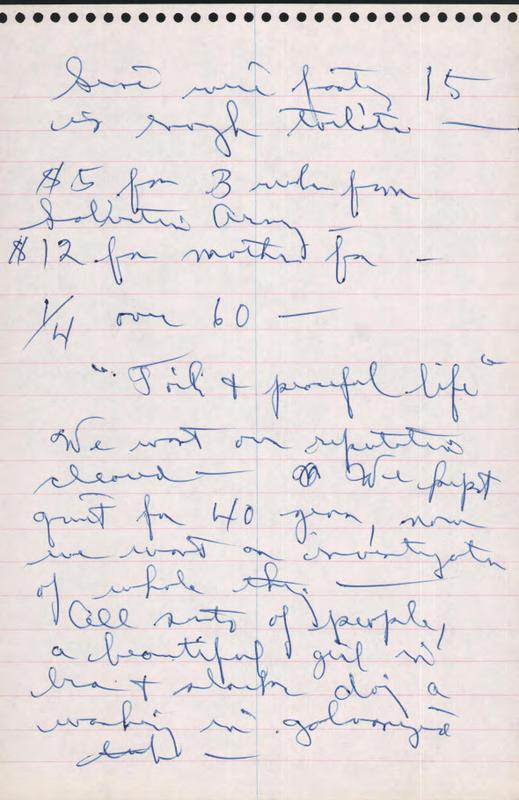 Since were forty 15
is rough toilets —
$5 for 3 wks from
Salvation Army —
$12 for mother for —
1/4 over 60 —
"Toil & peaceful life"
We want our reputation
cleared — We kept
quiet for 40 years, now
we want an investigation
of whole thing. —
All sorts of people,
a beautiful girl in
bra & slacks doing a
washing in galvanized
tub —